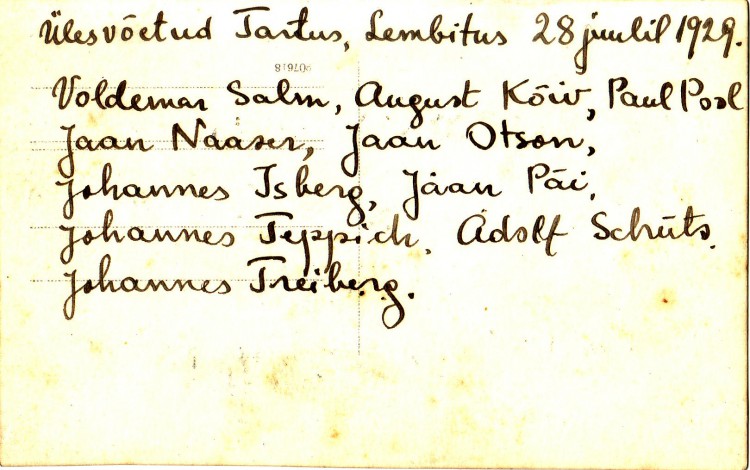 Ülesvõetud Tartus, Lembitus 28 juulil 1929.
907618
Voldemar Salm, August Kõiv, Paul Posl
Jaan Naaser, Jaan Otson,
Johannes Isberg, Jaan Päi,
Johannes Teppich, Adolf Schüts.
Johannes Treiberg.